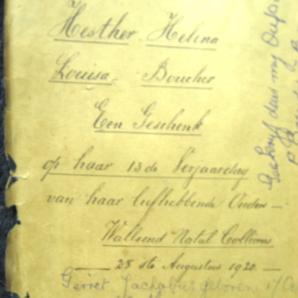 Hesther Helena
Louisa Boucher
Een Geschenk
op haar 13de Verjaardag
van haar liefhebbende Ouders —
Wallsend Natal
— 28 ste Augustus 1920 —
Gerret Jachobus geboren
Geskryf deur my Oupa